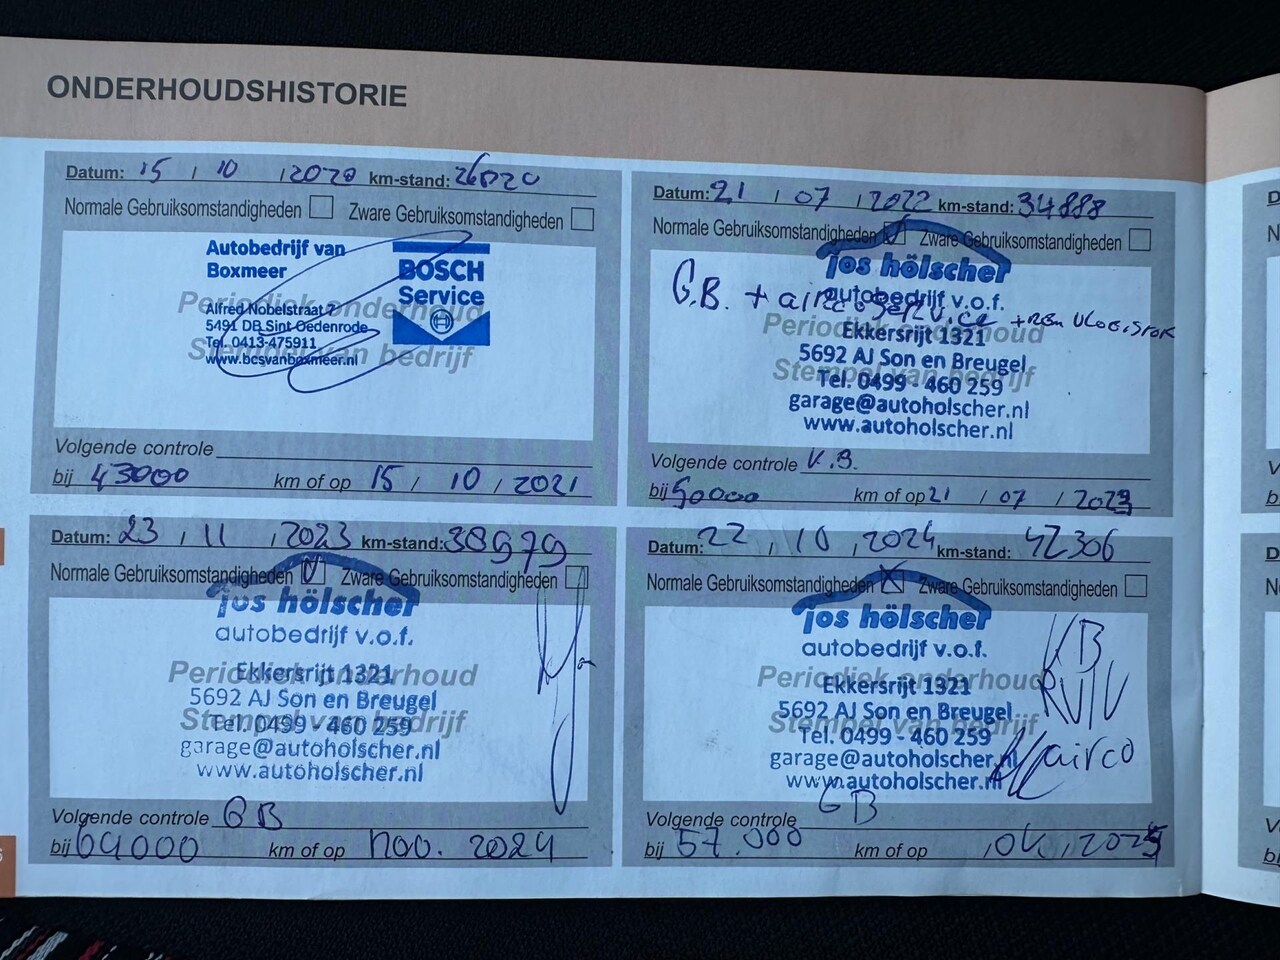 ONDERHOUDSHISTORIE
Datum: 15 / 10 / 2020 km-stand: 26020
Normale Gebruiksomstandigheden Zware Gebruiksomstandigheden
Autobedrijf van
Boxmeer
BOSCH
Service
Periodiek onderhoud
Alfred Nobelstraat 7
5491 DB Sint-Oedenrode
Tel. 0413-475911
Stempel van bedrijf
www.bcsvanboxmeer.nl
Volgende controle
bij 43000 km of op 15 / 10 / 2021
Datum: 21 / 07 / 2022 km-stand: 34888
Normale Gebruiksomstandigheden Zware Gebruiksomstandigheden
jos hölscher
G.B. + airco service + rem vloeistof
autobedrijf v.o.f.
Periodiek onderhoud
Ekkersrijt 1321
5692 AJ Son en Breugel
Stempel van bedrijf
Tel. 0499 - 460 259
garage@autoholscher.nl
www.autoholscher.nl
Volgende controle K.B.
bij 50000 km of op 21 / 07 / 2023
Datum: 23 / 11 / 2023 km-stand: 38979
Normale Gebruiksomstandigheden Zware Gebruiksomstandigheden
jos hölscher
autobedrijf v.o.f.
Periodiek onderhoud
Ekkersrijt 1321
5692 AJ Son en Breugel
Stempel van bedrijf
Tel. 0499 - 460 259
garage@autoholscher.nl
www.autoholscher.nl
Volgende controle GB
bij 64000 km of op nov. 2024
Datum: 22 / 10 / 2024 km-stand: 42306
Normale Gebruiksomstandigheden Zware Gebruiksomstandigheden
jos hölscher
KB
autobedrijf v.o.f.
Periodiek onderhoud
RVLV
Ekkersrijt 1321
5692 AJ Son en Breugel
Stempel van bedrijf
Tel. 0499 - 460 259
airco
garage@autoholscher.nl
www.autoholscher.nl
Volgende controle GB
bij 57.000 km of op , 2025